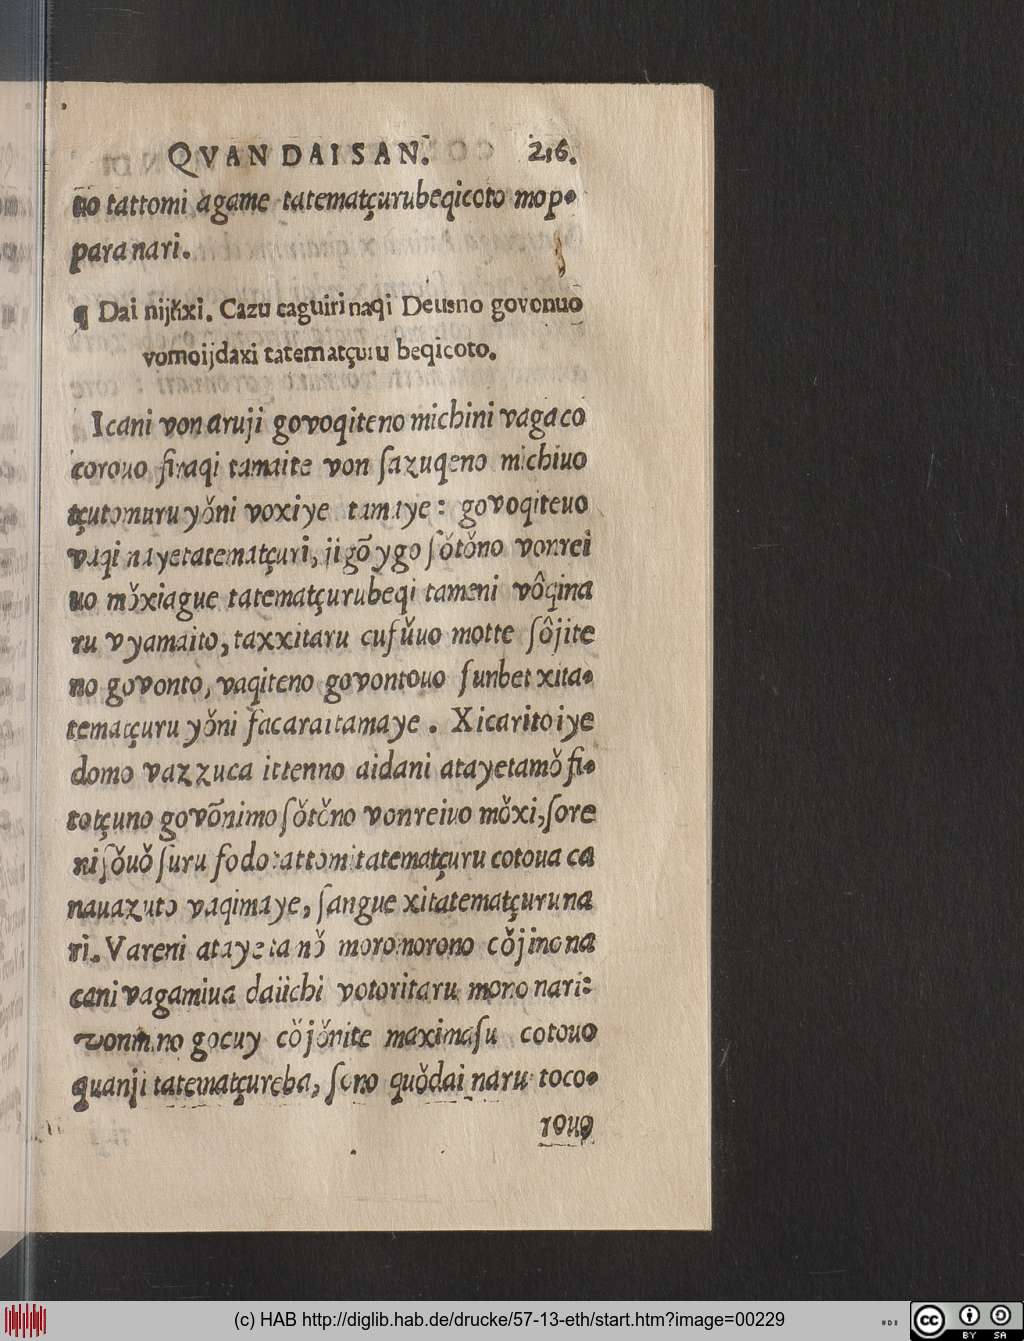 QVAN DAI SAN. 216.
no tattomi agame tatematçurubeqicoto mop-
para nari.
¶ Dai nijŭxi. Cazu caguiri naqi Deusno govonuo
vomoijdaxi tatematçuru beqicoto.
Icani von aruji govoqiteno michini vagaco
corouo firaqi tamaite von ſazuqeno michiuo
tçutomuru yŏni voxiye tamaye: govoqiteuo
vaqi nayetatematçuri, ji gõ ygo ſŏtŏno vonrei
uo mŏxiague tatematçurubeqi tameni vôqina
ru vyamaito, taxxitaru cufŭuo motte ſôjite
no govonto, vaqiteno govontouo funbet xita-
tematçuru yŏni facaraitamaye. Xicarito iye
domo vazzuca ittenno aidani atayetamŏ fi-
totçuno govõnimo ſŏtŏno vonreiuo mŏxi, ſore
ni ſŏuŏ ſuru fodo tattomi tatematçuru cotoua ca
nauazuto vaqimaye, ſangue xitatematçuru na
ri. Vareni atayetanŏ moromorono cŏjinona
cani vagamiua daiichi votoritaru mono nari:
vonmino gocuy cŏjŏnite maximaſu cotouo
quanji tatematçureba, ſono quŏdai naru toco-
rouo
(c) HAB http://diglib.hab.de/drucke/57-13-eth/start.htm?image=00229
cc BY SA